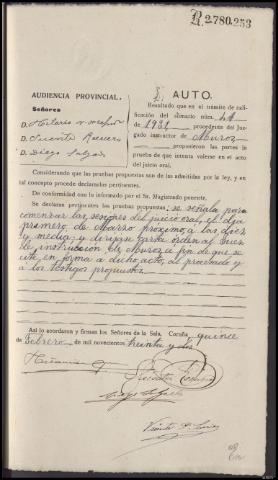 R. 2.780,253
AUDIENCIA PROVINCIAL.
Señores
D. Hilario
D. Vicente
D. Diego Salgado
AUTO.
Resultado que en el trámite de calificación
del sumario núm. 44
de 1931 procedente del Juzgado
instructor de Muros
propusieron las partes la
prueba de que intenta valerse en el acto
del juicio oral.
Considerando que las pruebas propuestas son de las admitidas por la ley, y en
tal concepto procede declararlas pertinentes.
De conformidad con lo informado por el Sr. Magistrado ponente.
Se declaran pertinentes las pruebas propuestas; se señala para
comenzar las sesiones del juicio oral, el día
primero de Marzo próximo a las diez
y media; y diríjase carta orden al Juez
de instrucción de Muros a fin de que se
cite en forma a dicho acto, al procesado y
a los testigos propuestos.
Así lo acordaron y firman los Señores de la Sala. Coruña quince
de Febrero de mil novecientos treinta y dos